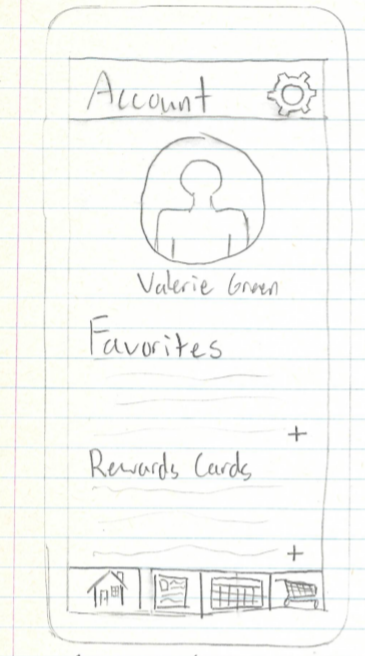 Account
Valerie Green
Favorites
+
Rewards Cards
+